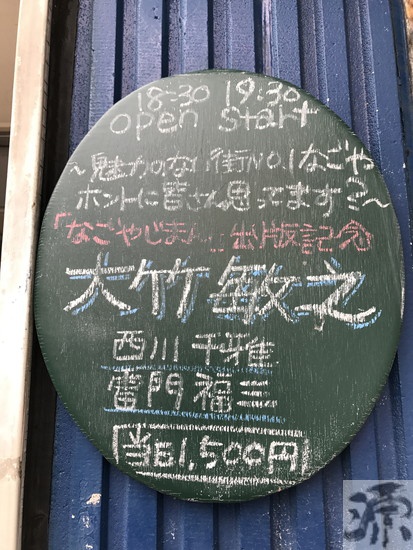 18:30 19:30
open start
～魅力のない街NO.1なごや
ホントに皆さん思ってます?～
「なごやじまん」出版記念
大竹敏之
西川千雅
雷門福三
当日1,500円
源